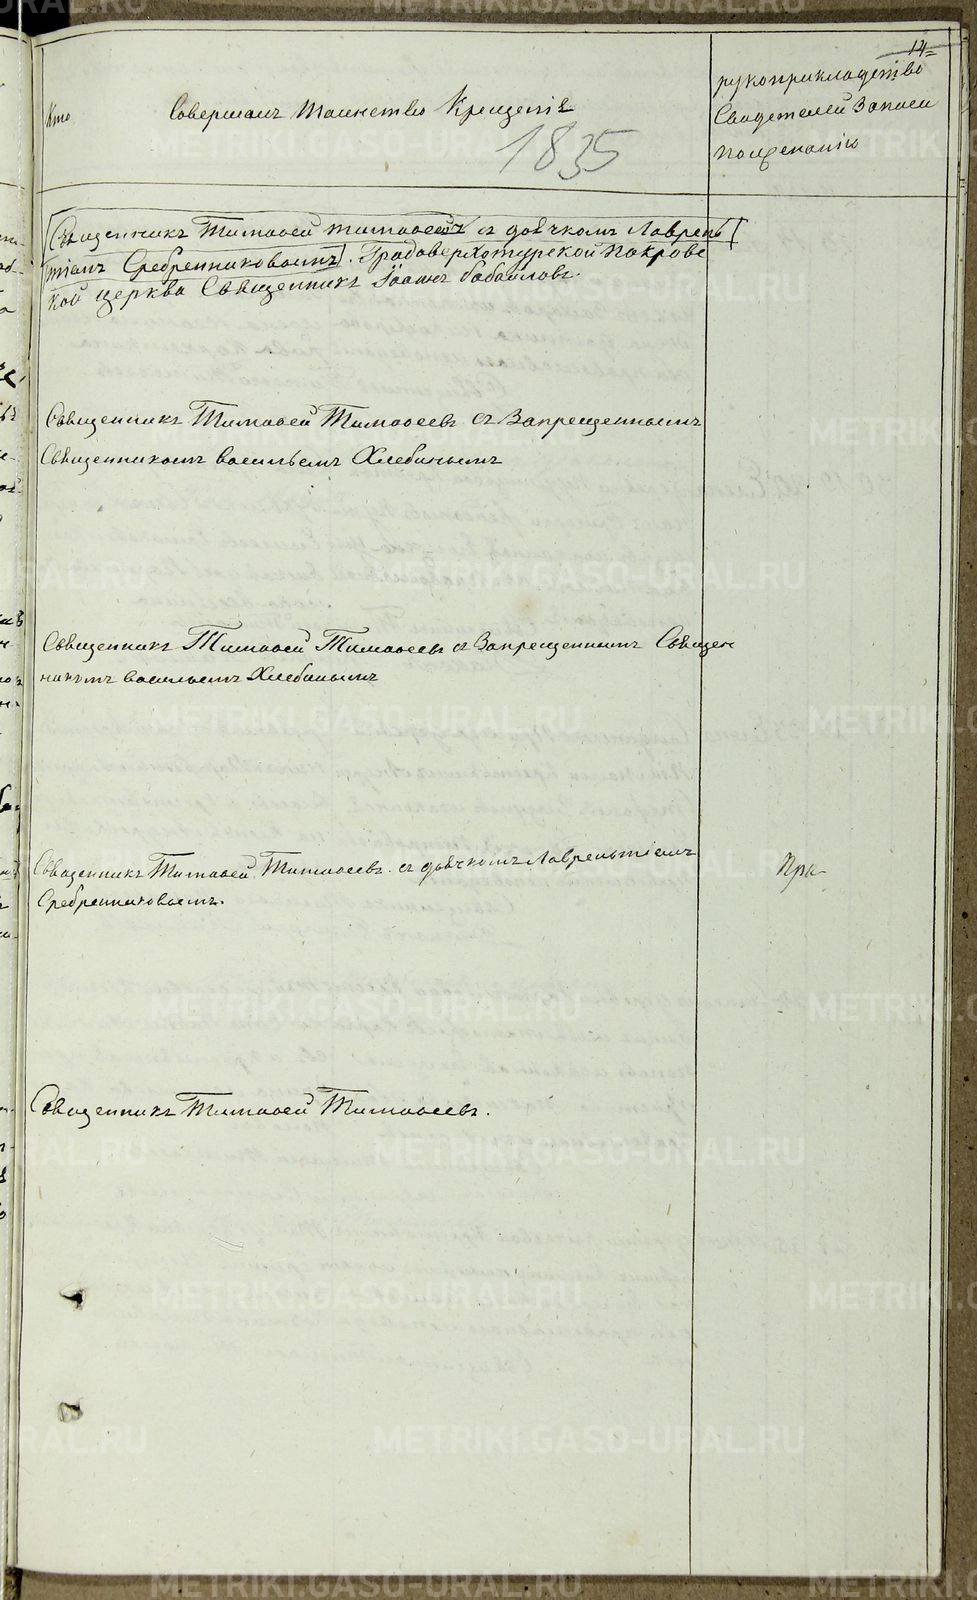 14
Кто Совершалъ Таинство Крещенія
1835
рукоприкладство
Свидетелей Записи
пожеланію
Священникъ Тимофей Тимофеевъ съ дьячкомъ Лаврень
тіемъ Сребренниковымъ. Градоверхотурской Покровс
кой церкви Священникъ Іоаннъ бабайловъ.
Священникъ Тимофей Тимофеевъ съ Запрещеннымъ
Священникомъ васильемъ Хлебинымъ
Священникъ Тимофей Тимофеевъ съ Запрещеннымъ Священ
никомъ васильемъ Хлебинымъ
Священникъ Тимофей Тимофеевъ съ дьячкомъ Лаврентіемъ
Сребренниковымъ.
При
Священникъ Тимофей Тимофеевъ.
METRIKI.GASO-URAL.RU